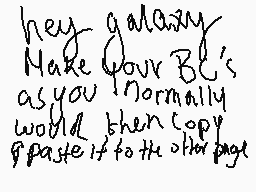 hey galaxy
Make your BG's
as you normally
would then copy
& paste it to the other page